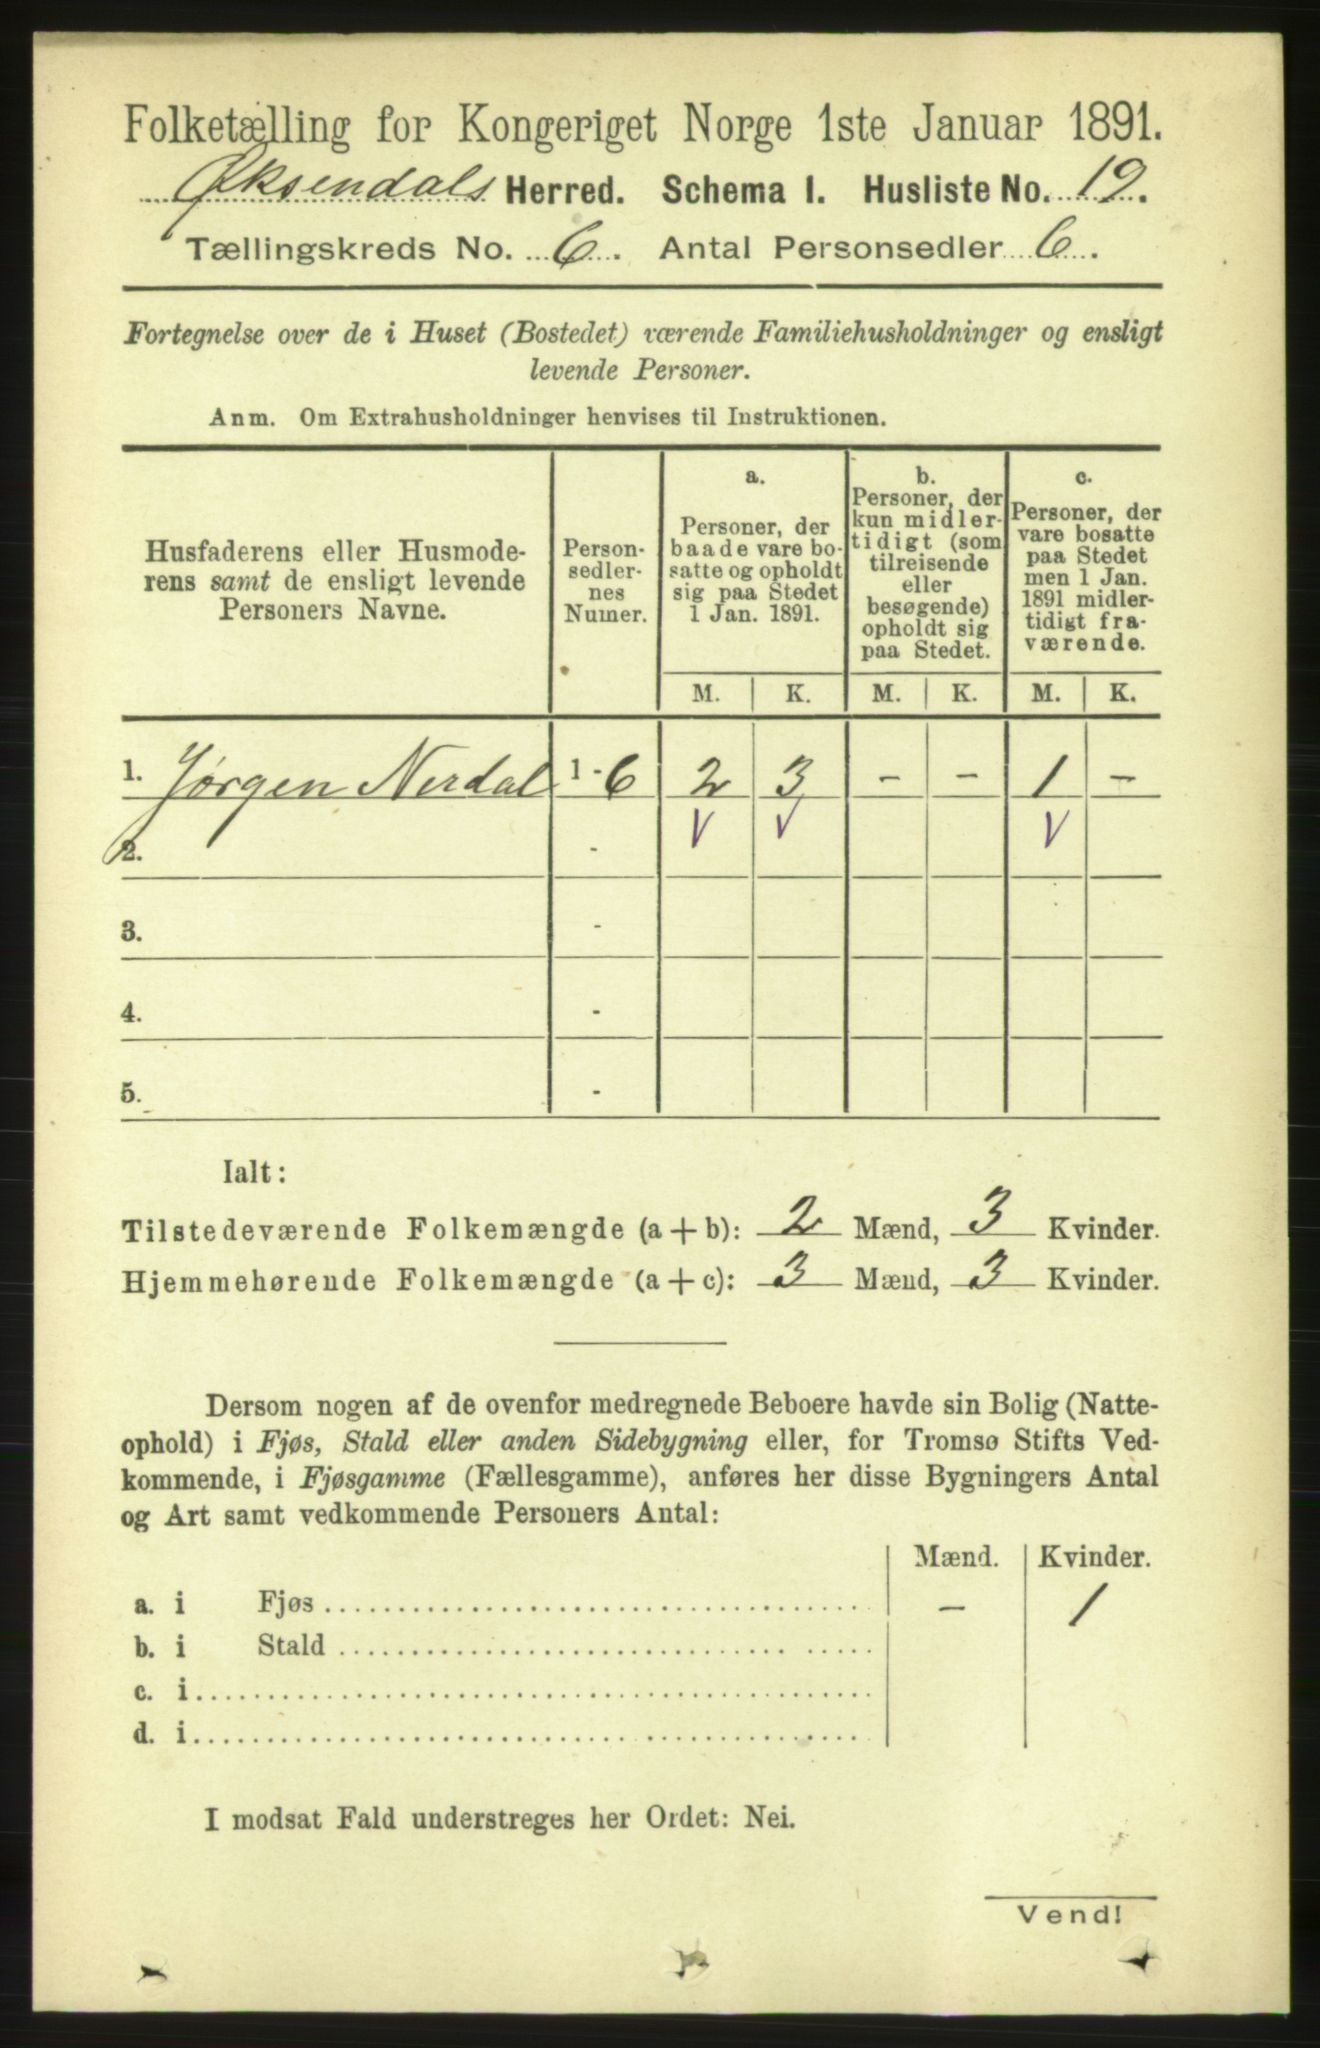 Folketælling for Kongeriget Norge 1ste Januar 1891.
Øksendals Herred. Schema I. Husliste No. 19.
Tællingskreds No. 6. Antal Personsedler 6.
Fortegnelse over de i Huset (Bostedet) værende Familiehusholdninger og ensligt
levende Personer.
Anm. Om Extrahusholdninger henvises til Instruktionen.
Husfaderens eller Husmode-
rens samt de ensligt levende
Personers Navne.
Person-
sedler-
nes
Numer.
a.
Personer, der
baade vare bo-
satte og opholdt
sig paa Stedet
1 Jan. 1891.
b.
Personer, der
kun midler-
tidigt (som
tilreisende
eller
besøgende)
opholdt sig
paa Stedet.
c.
Personer, der
vare bosatte
paa Stedet
men 1 Jan.
1891 midler-
tidigt fra-
værende.
M. K. M. K. M. K.
1. Jørgen Nerdal 1 - 6 2 3 - - 1 -
2. - V V V
3. -
4. -
5. -
Ialt:
Tilstedeværende Folkemængde (a + b): 2 Mænd, 3 Kvinder.
Hjemmehørende Folkemængde (a + c): 3 Mænd, 3 Kvinder.
Dersom nogen af de ovenfor medregnede Beboere havde sin Bolig (Natte-
ophold) i Fjøs, Stald eller anden Sidebygning eller, for Tromsø Stifts Ved-
kommende, i Fjøsgamme (Fællesgamme), anføres her disse Bygningers Antal
og Art samt vedkommende Personers Antal:
Mænd. Kvinder.
a. i Fjøs - 1
b. i Stald
c. i
d. i
I modsat Fald understreges her Ordet: Nei.
Vend!